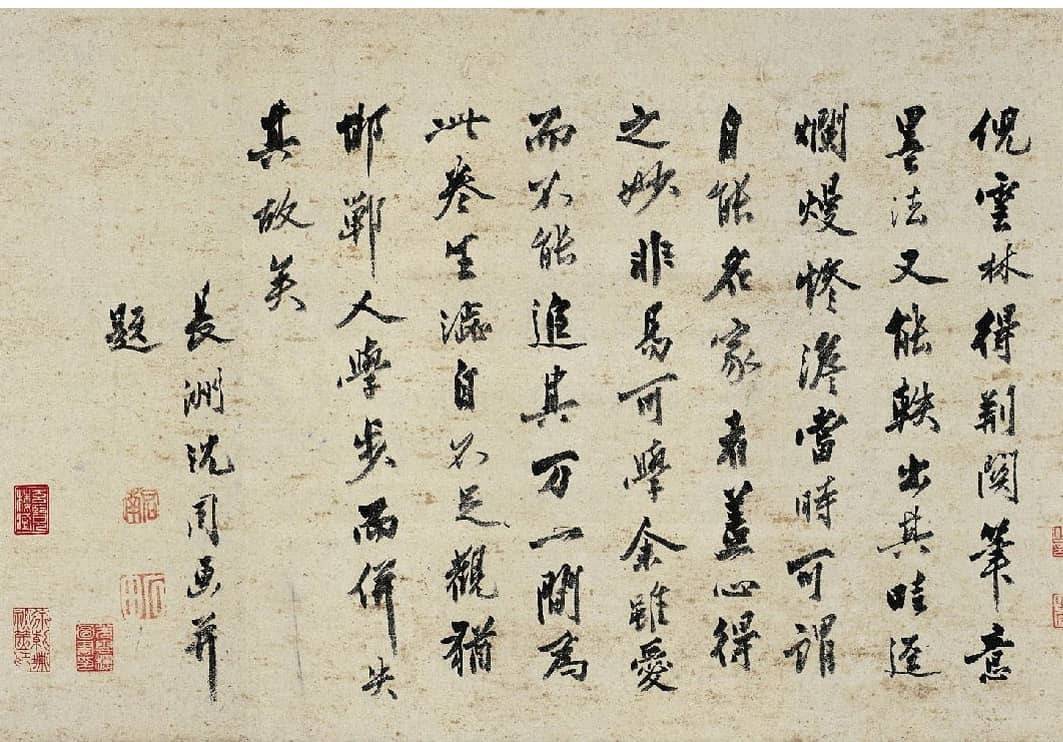 倪雲林得荆関筆意
墨法又能軼出其畦逕
爛熳慘澹當時可謂
自能名家者盖心得
之妙非易可學余雖愛
而不能追其万一間為
此卷生澁自不足觀猶
邯鄲人學步而併失
其故矣
長洲沈周畫并
題